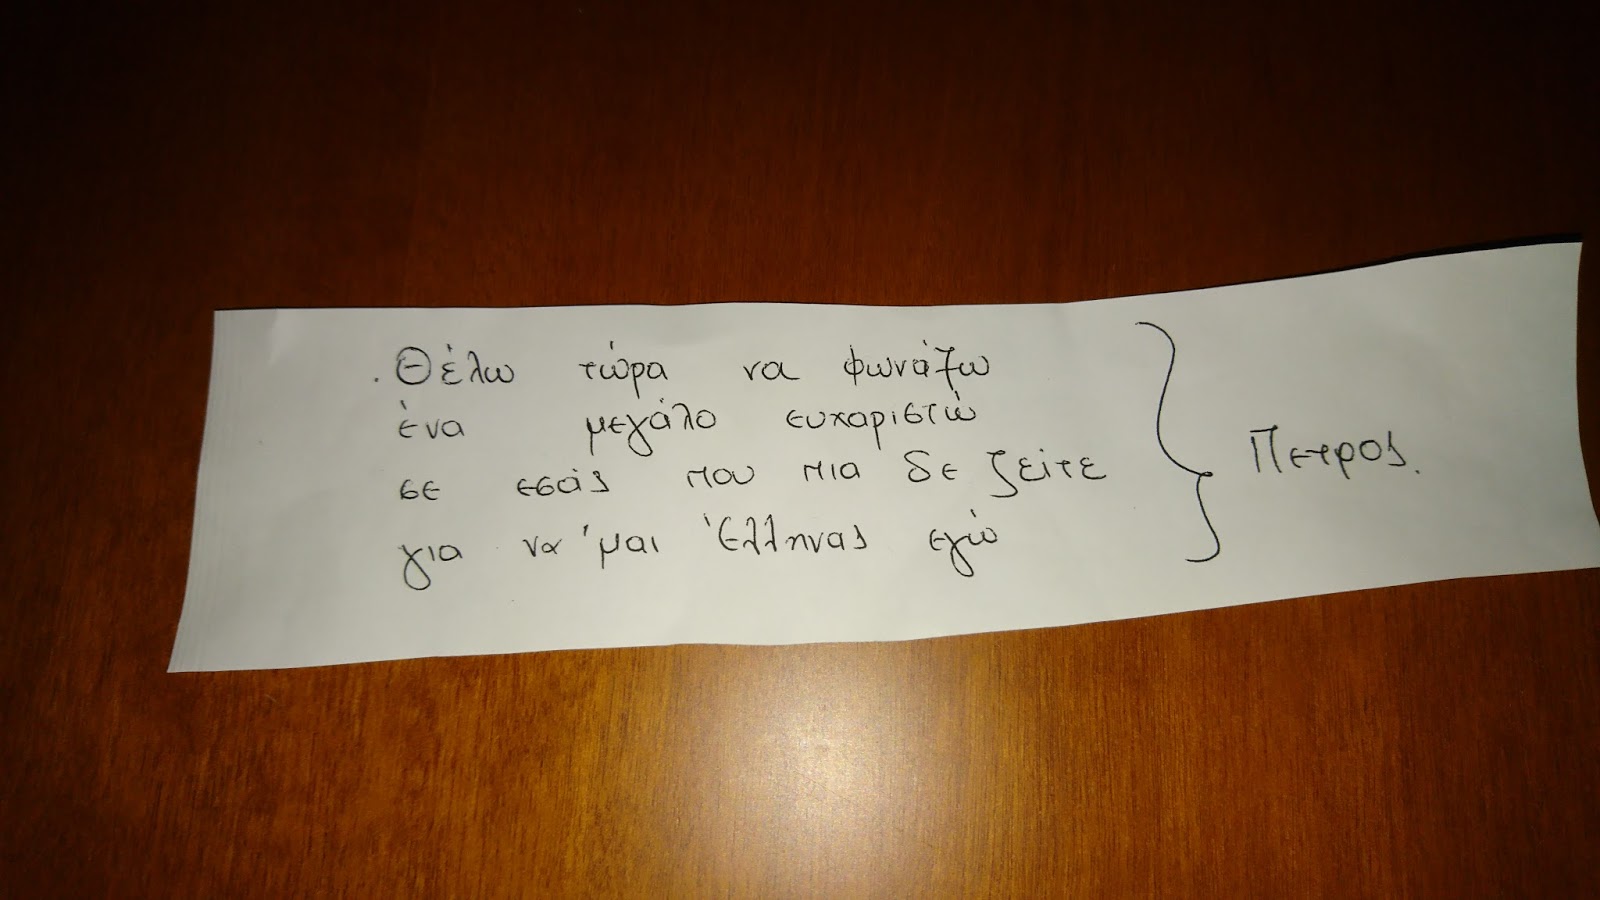 . Θέλω τώρα να φωνάξω
ένα μεγάλο ευχαριστώ
σε εσάς που πια δε ζείτε
για να 'μαι Έλληνας εγώ
Πετρος.